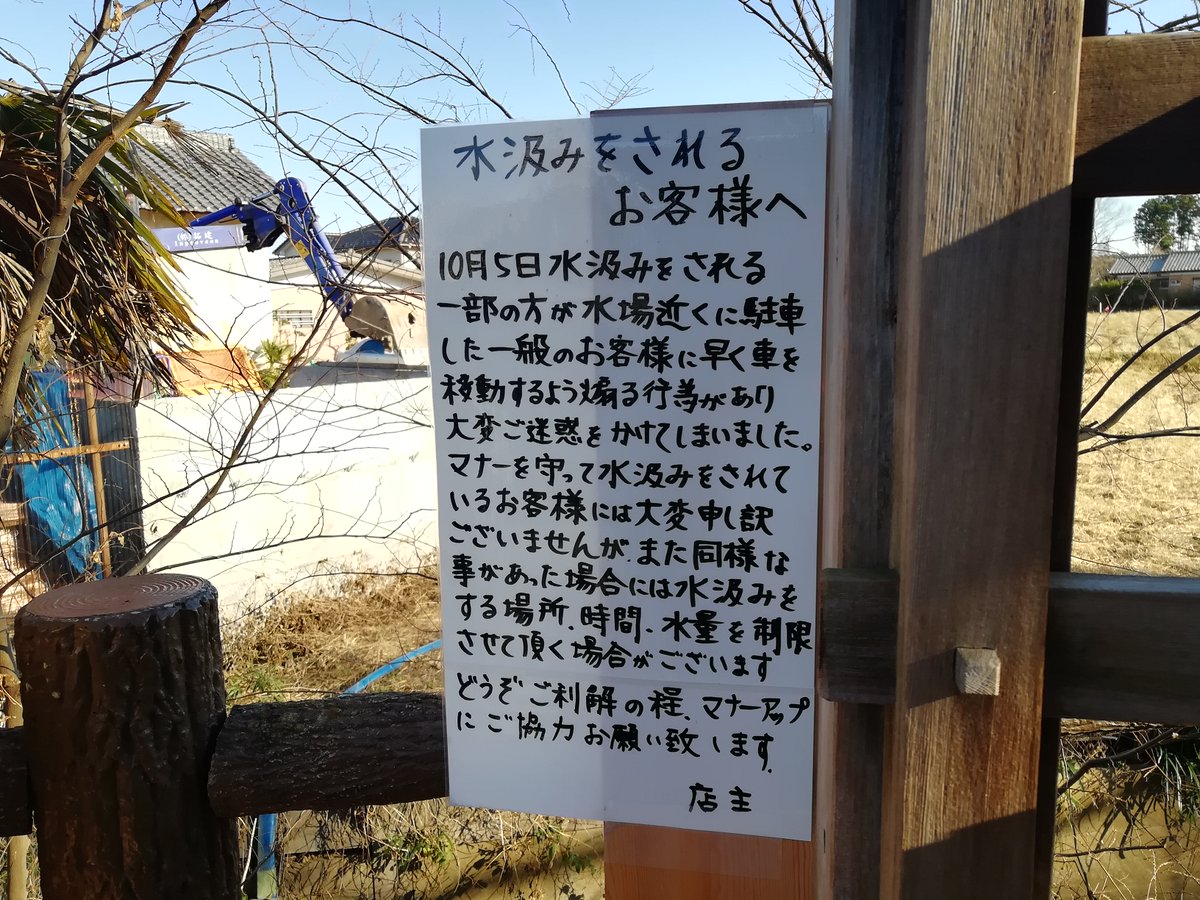 水汲みをされる
お客様へ
10月5日水汲みをされる
一部の方が水場近くに駐車
した一般のお客様に早く車を
移動するよう煽る行為があり
大変ご迷惑をかけてしまいました。
マナーを守って水汲みをされて
いるお客様には大変申し訳
ございませんが、また同様な
事があった場合には水汲みを
する場所、時間、水量を制限
させて頂く場合がございます
どうぞご利解の程、マナーアップ
にご協力お願い致します。
店主